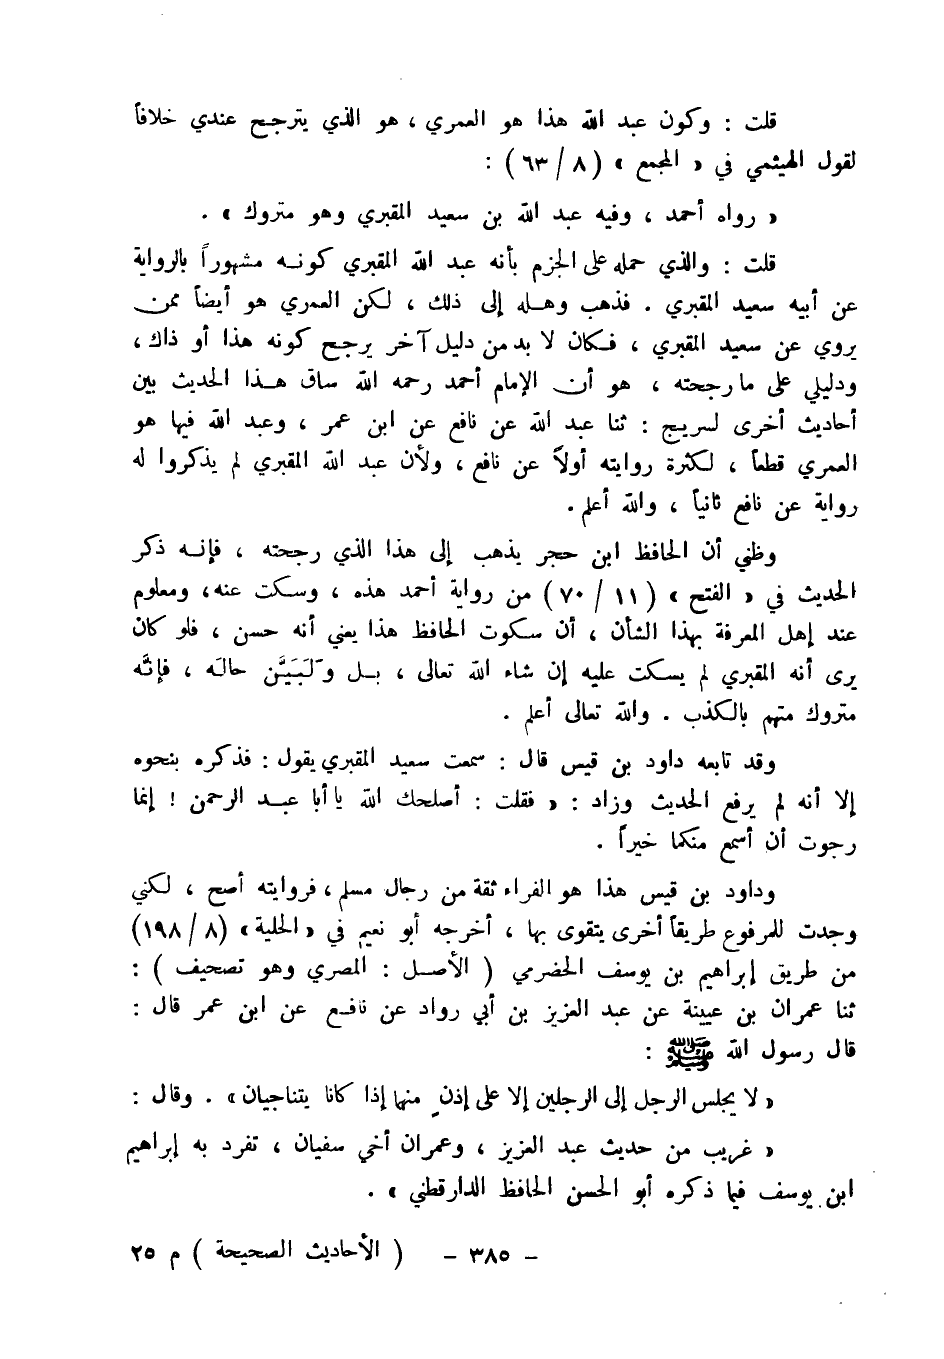 قلت : وكون عبد الله هذا هو العمري ، هو الذي يترجح عندي خلافاً
لقول الهيثمي في « المجمع » ( ٨ / ٦٣ ) :
« رواه أحمد ، وفيه عبد الله بن سعيد المقبري وهو متروك » .
قلت : والذي حمله على الجزم بأنه عبد الله المقبري كونه مشهوراً بالرواية
عن أبيه سعيد المقبري . فذهب وهله إلى ذلك ، لكن العمري هو أيضاً ممن
يروي عن سعيد المقبري ، فكان لا بد من دليل آخر يرجح كونه هذا أو ذاك ،
ودليلي على ما رجحته ، هو أن الإمام أحمد رحمه الله ساق هذا الحديث بين
أحاديث أخرى لسريج : ثنا عبد الله عن نافع عن ابن عمر ، وعبد الله فيها هو
العمري قطعاً ، لكثرة روايته أولاً عن نافع ، ولأن عبد الله المقبري لم يذكروا له
رواية عن نافع ثانياً ، والله أعلم .
وظني أن الحافظ ابن حجر يذهب إلى هذا الذي رجحته ، فإنه ذكر
الحديث في « الفتح » ( ١١ / ٧٠ ) من رواية أحمد هذه ، وسكت عنه ، ومعلوم
عند إهل المعرفة بهذا الشأن ، أن سكوت الحافظ هذا يعني أنه حسن ، فلو كان
يرى أنه المقبري لم يسكت عليه إن شاء الله تعالى ، بل وَلَبَيَّن حالَه ، فإنَّه
متروك متهم بالكذب . والله تعالى أعلم .
وقد تابعه داود بن قيس قال : سمعت سعيد المقبري يقول : فذكره بنحوه
إلا أنه لم يرفع الحديث وزاد : « فقلت : أصلحك الله يا أبا عبد الرحمن ! إنما
رجوت أن أسمع منكما خيراً .
وداود بن قيس هذا هو الفراء ثقة من رجال مسلم ، فروايته أصح ، لكني
وجدت للمرفوع طريقاً أخرى يتقوى بها ، أخرجه أبو نعيم في « الحلية » ( ٨ / ١٩٨ )
من طريق إبراهيم بن يوسف الحضرمي ( الأصل : المصري وهو تصحيف ) :
ثنا عمران بن عيينة عن عبد العزيز بن أبي رواد عن نافع عن ابن عمر قال :
قال رسول الله ﷺ :
« لا يجلس الرجل إلى الرجلين إلا على إذنٍ منهما إذا كانا يتناجيان » . وقال :
« غريب من حديث عبد العزيز ، وعمران أخي سفيان ، تفرد به إبراهيم
ابن يوسف فيما ذكره أبو الحسن الحافظ الدارقطني » .
- ٣٨٥ - ( الأحاديث الصحيحة ) م ٢٥